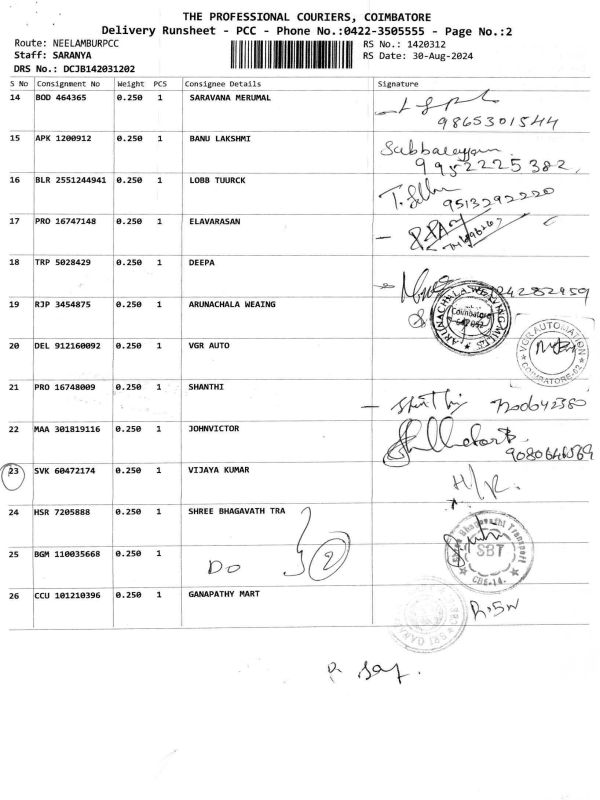 THE PROFESSIONAL COURIERS, COIMBATORE
Delivery Runsheet - PCC - Phone No.:0422-3505555 - Page No.:2
Route: NEELAMBURPCC RS No.: 1420312
Staff: SARANYA RS Date: 30-Aug-2024
DRS No.: DCJB142031202
S No Consignment No Weight PCS Consignee Details Signature
14 BOD 464365 0.250 1 SARAVANA MERUMAL
9865301544
15 APK 1200912 0.250 1 BANU LAKSHMI
9952225382
16 BLR 2551244941 0.250 1 LOBB TUURCK
9513292220
17 PRO 16747148 0.250 1 ELAVARASAN
18 TRP 5028429 0.250 1 DEEPA
19 RJP 3454875 0.250 1 ARUNACHALA WEAING
ARUNACHALA WEAVING MILLS
Coimbatore
20 DEL 912160092 0.250 1 VGR AUTO
VGR AUTOMATION
COIMBATORE-02
21 PRO 16748009 0.250 1 SHANTHI
22 MAA 301819116 0.250 1 JOHNVICTOR
9080646569
23 SVK 60472174 0.250 1 VIJAYA KUMAR
H/R.
24 HSR 7205888 0.250 1 SHREE BHAGAVATH TRA
Bhagavathi Transport
SBT
CBE-14.
25 BGM 110035668 0.250 1
DO 2
26 CCU 101210396 0.250 1 GANAPATHY MART